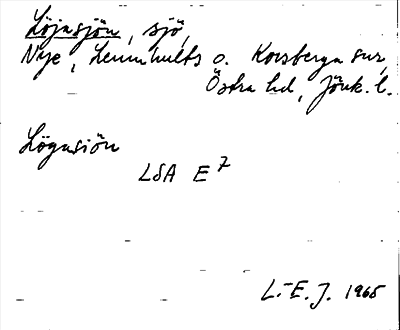 Löjasjön, sjö,
Nye, Lemnhults o. Korsberga snr,
Östra hd, Jönk. l.
Lögasiön
LSA E 7
L.-E. J. 1965